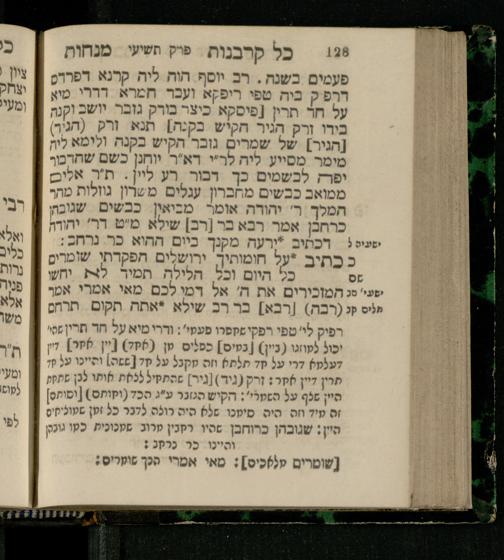 128 כל קרבנות פרק תשיעי מנחות
פעמים בשנה. רב יוסף הוה ליה קרנא דפרדס
דרפיק ביה טפי ריפקא ועבד חמרא דדרי מיא
על חד תרין [פיסקא כיצד בודק גזבר יושב וקנה
בידו זרק הגיר הקיש בקנה] תנא זרק (הגיד)
[הגיר] של שמרים גזבר הקיש בקנה ולימא ליה
מימר מסייע ליה לר״י דא״ר יוחנן כשם שהדבור
יפה לבשמים כך דבור רע ליין. ת״ר אלים
ממואב כבשים מחברון עגלים משרון גוזלות מהר
המלך ר׳ יהודה אומר מביאין כבשים שגובהן
כרחבן אמר רבא בר [רב] שילא מ״ט דר׳ יהודה
דכתיב *ירעה מקנך ביום ההוא כר נרחב:
ישעיה ל
כ כתיב *על חומותיך ירושלים הפקדתי שומרים
כל היום וכל הלילה תמיד לא יחשו
שם
המזכירים את ה׳ אל דמי לכם מאי אמרי אמר
ישעי׳ סב
(רבה) [רבא] בר רב שילא *אתה תקום תרחם
תלים קב
רפיק לי׳ טפי רפקי שחפרו פעמי׳: ודרי מיא על חד תרין שהי׳
יכול למזוגו (ביין) [במים] כפלים מן (אקד) [יין אחר] דיין
דעלמא דרי על חד תלתא וזה מקבל על חד [ששה] והיינו על חד
תרין דיין אחר: זרק (גיד) [גיר] שהתחיל לצאת אותו לבן שתחת
היין שצף על השמרי׳: הקיש הגזבר ע״ג הכד (וקותס) [וסותם]
זה מיד וזה היה סימנו שלא היה רוצה לדבר כל זמן שמוליכים
היין: שגובהן כרוחבן שהיו רחבין מרוב שמנונית כמו גובהן
והיינו כר נרחב:
[שומרים מלאכים]: מאי אמרי הנך שומרים: